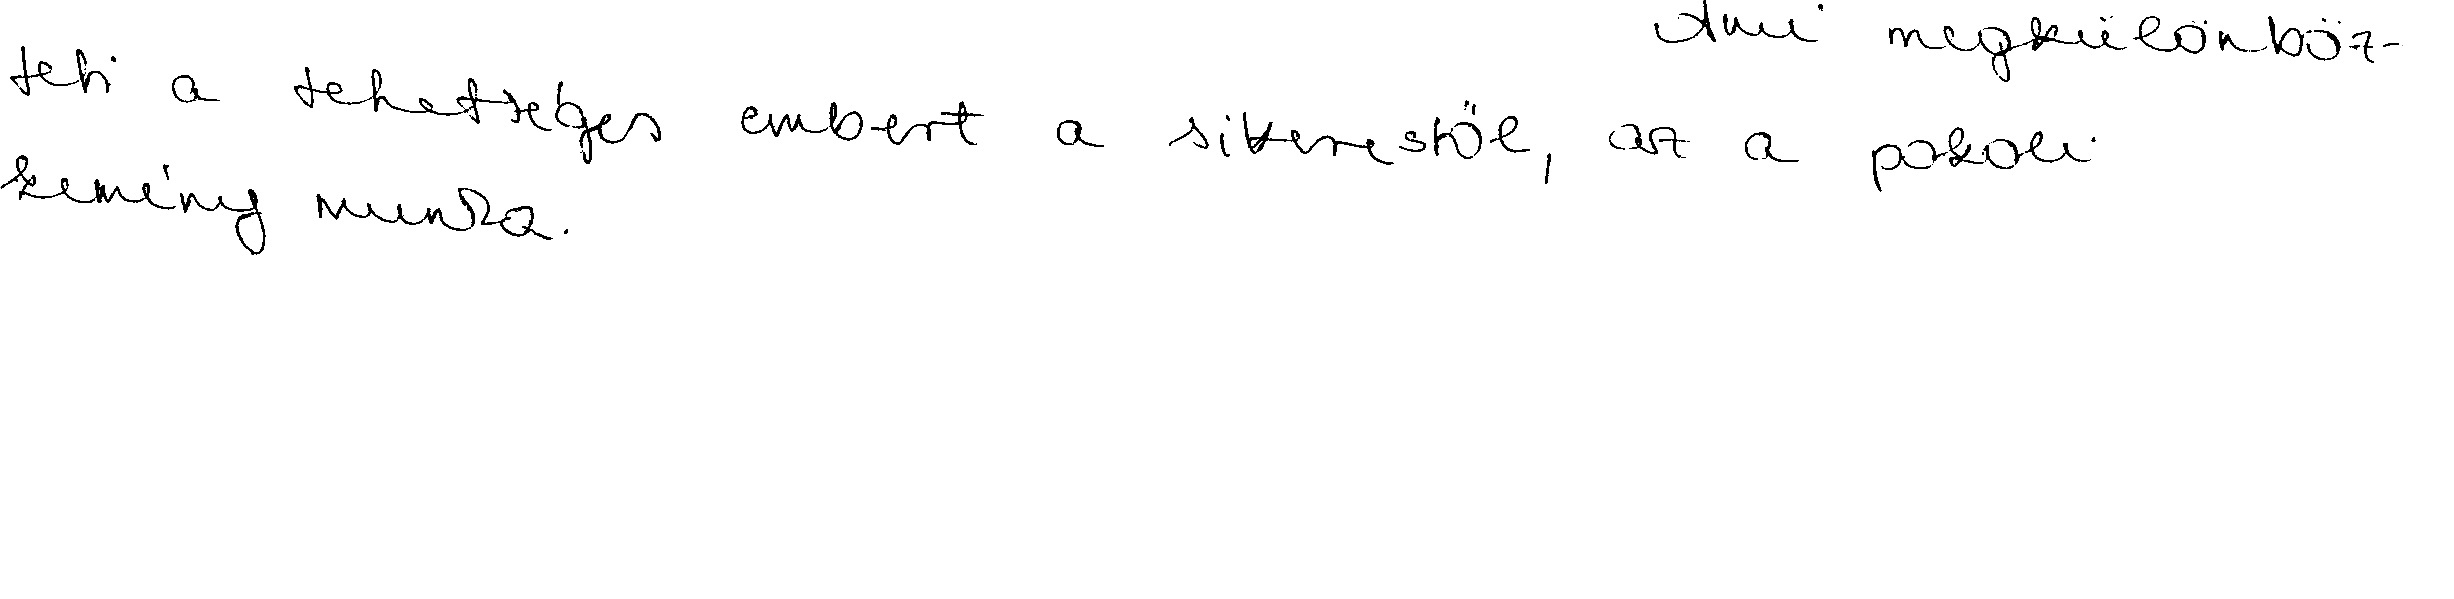 Ami megkülönböz-
teti a tehetséges embert a sikerestől, az a pokoli
kemény munka.